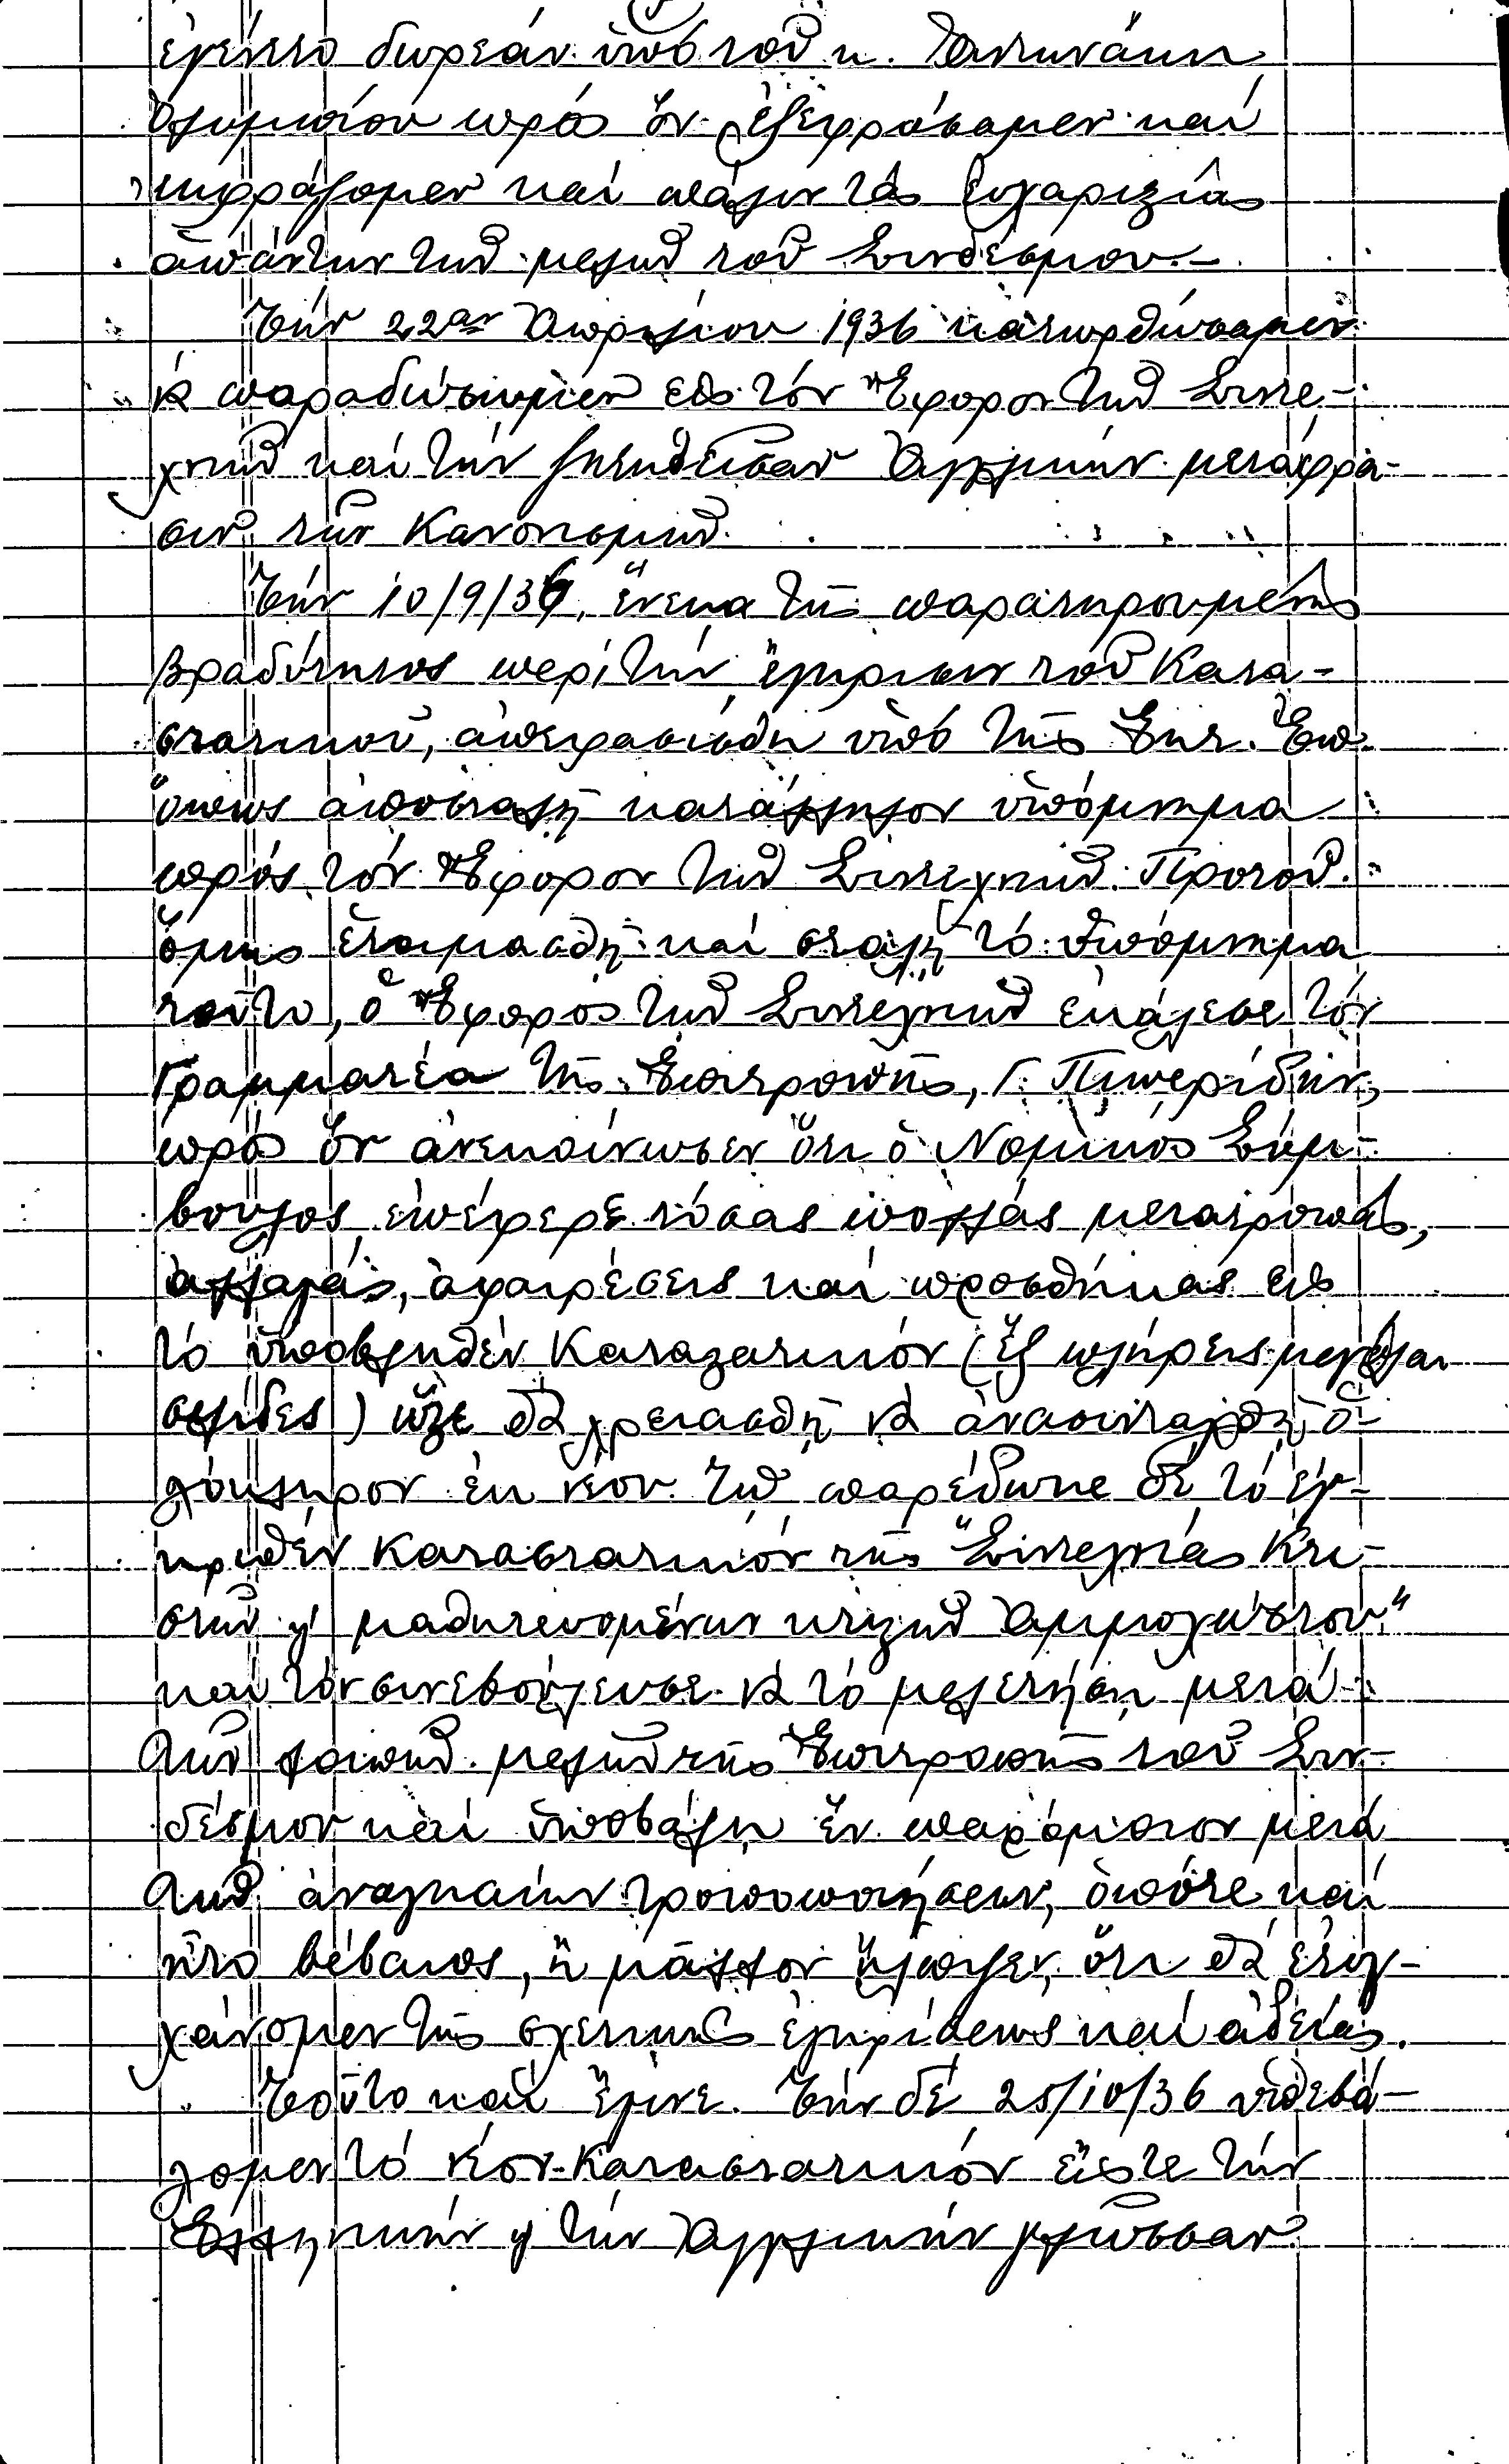 ἐγένετο δωρεάν ὑπό τοῦ κ. Ἀντωνάκη
Ὀλυμπίου πρός ὅν ἐξεφράσαμεν καί
ἐκφράζομεν καί πάλιν τάς εὐχαριστίας
ἁπάντων τῶν μελῶν τοῦ Συνδέσμου.—
Τήν 22αν Ἀπριλίου 1936 κατωρθώσαμεν
κ παραδώσωμεν εἰς τόν Ἔφορον τῶν Συντε-
χνιῶν καί τήν ζητηθεῖσαν Ἀγγλικήν μετάφρα-
σιν τῶν Κανονισμῶν.
Τήν 10/9/36, ἕνεκα τῆς παρατηρουμένης
βραδύτητος περί τήν ἔγκρισιν τοῦ Κατα-
στατικοῦ, ἀπεφασίσθη ὑπό τῆς Ἐκτ. Ἐπ.
ὅπως ἀποσταλῇ κατάλληλον ὑπόμνημα
πρός τόν Ἔφορον τῶν Συντεχνιῶν. Προτοῦ
ὅμως ἑτοιμασθῇ καί σταλῇ τό ὑπόμνημα
τοῦτο, ὁ Ἔφορος τῶν Συντεχνιῶν ἐκάλεσε τόν
Γραμματέα τῆς Ἐπιτροπῆς, Γ. Πιπερίδην,
πρός ὅν ἀνεκοίνωσεν ὅτι ὁ Νομικός Σύμ-
βουλος ἐπέφερε τόσας πολλάς μετατροπάς,
ἀλλαγάς, ἀφαιρέσεις καί προσθήκας εἰς
τό ὑποβληθέν Καταστατικόν (ἕξ πλήρεις μεγάλαι
σελίδες) ὥστε θά χρειασθῇ νά ἀνασυνταχθῇ ὁ-
λόκληρον ἐκ νέου. Τῷ παρέδωκε δέ τό ἐγ-
κριθέν Καταστατικόν τῆς "Συντεχνίας Κτι-
στῶν κ' μαθητευομένων κτιστῶν Ἀμμοχώστου"
καί τόν συνεβούλευσε νά τό μελετήσῃ μετά
τῶν λοιπῶν μελῶν τῆς Ἐπιτροπῆς τοῦ Συν-
δέσμου καί ὑποβάλῃ ἕν παρόμοιον μετά
τῶν ἀναγκαίων τροποποιήσεων, ὁπότε καί
ἦτο βέβαιος, ἤ μᾶλλον ἤλπιζεν, ὅτι θά ἐτύγ-
χάνομεν τῆς σχετικῆς ἐγκρίσεως καί ἀδείας.
Τοῦτο καί ἔγινε. Τήν δέ 25/10/36 ὑπεβά-
λομεν τό νέον Καταστατικόν εἴς τε τήν
Ἑλληνικήν κ' τήν Ἀγγλικήν γλῶσσαν.